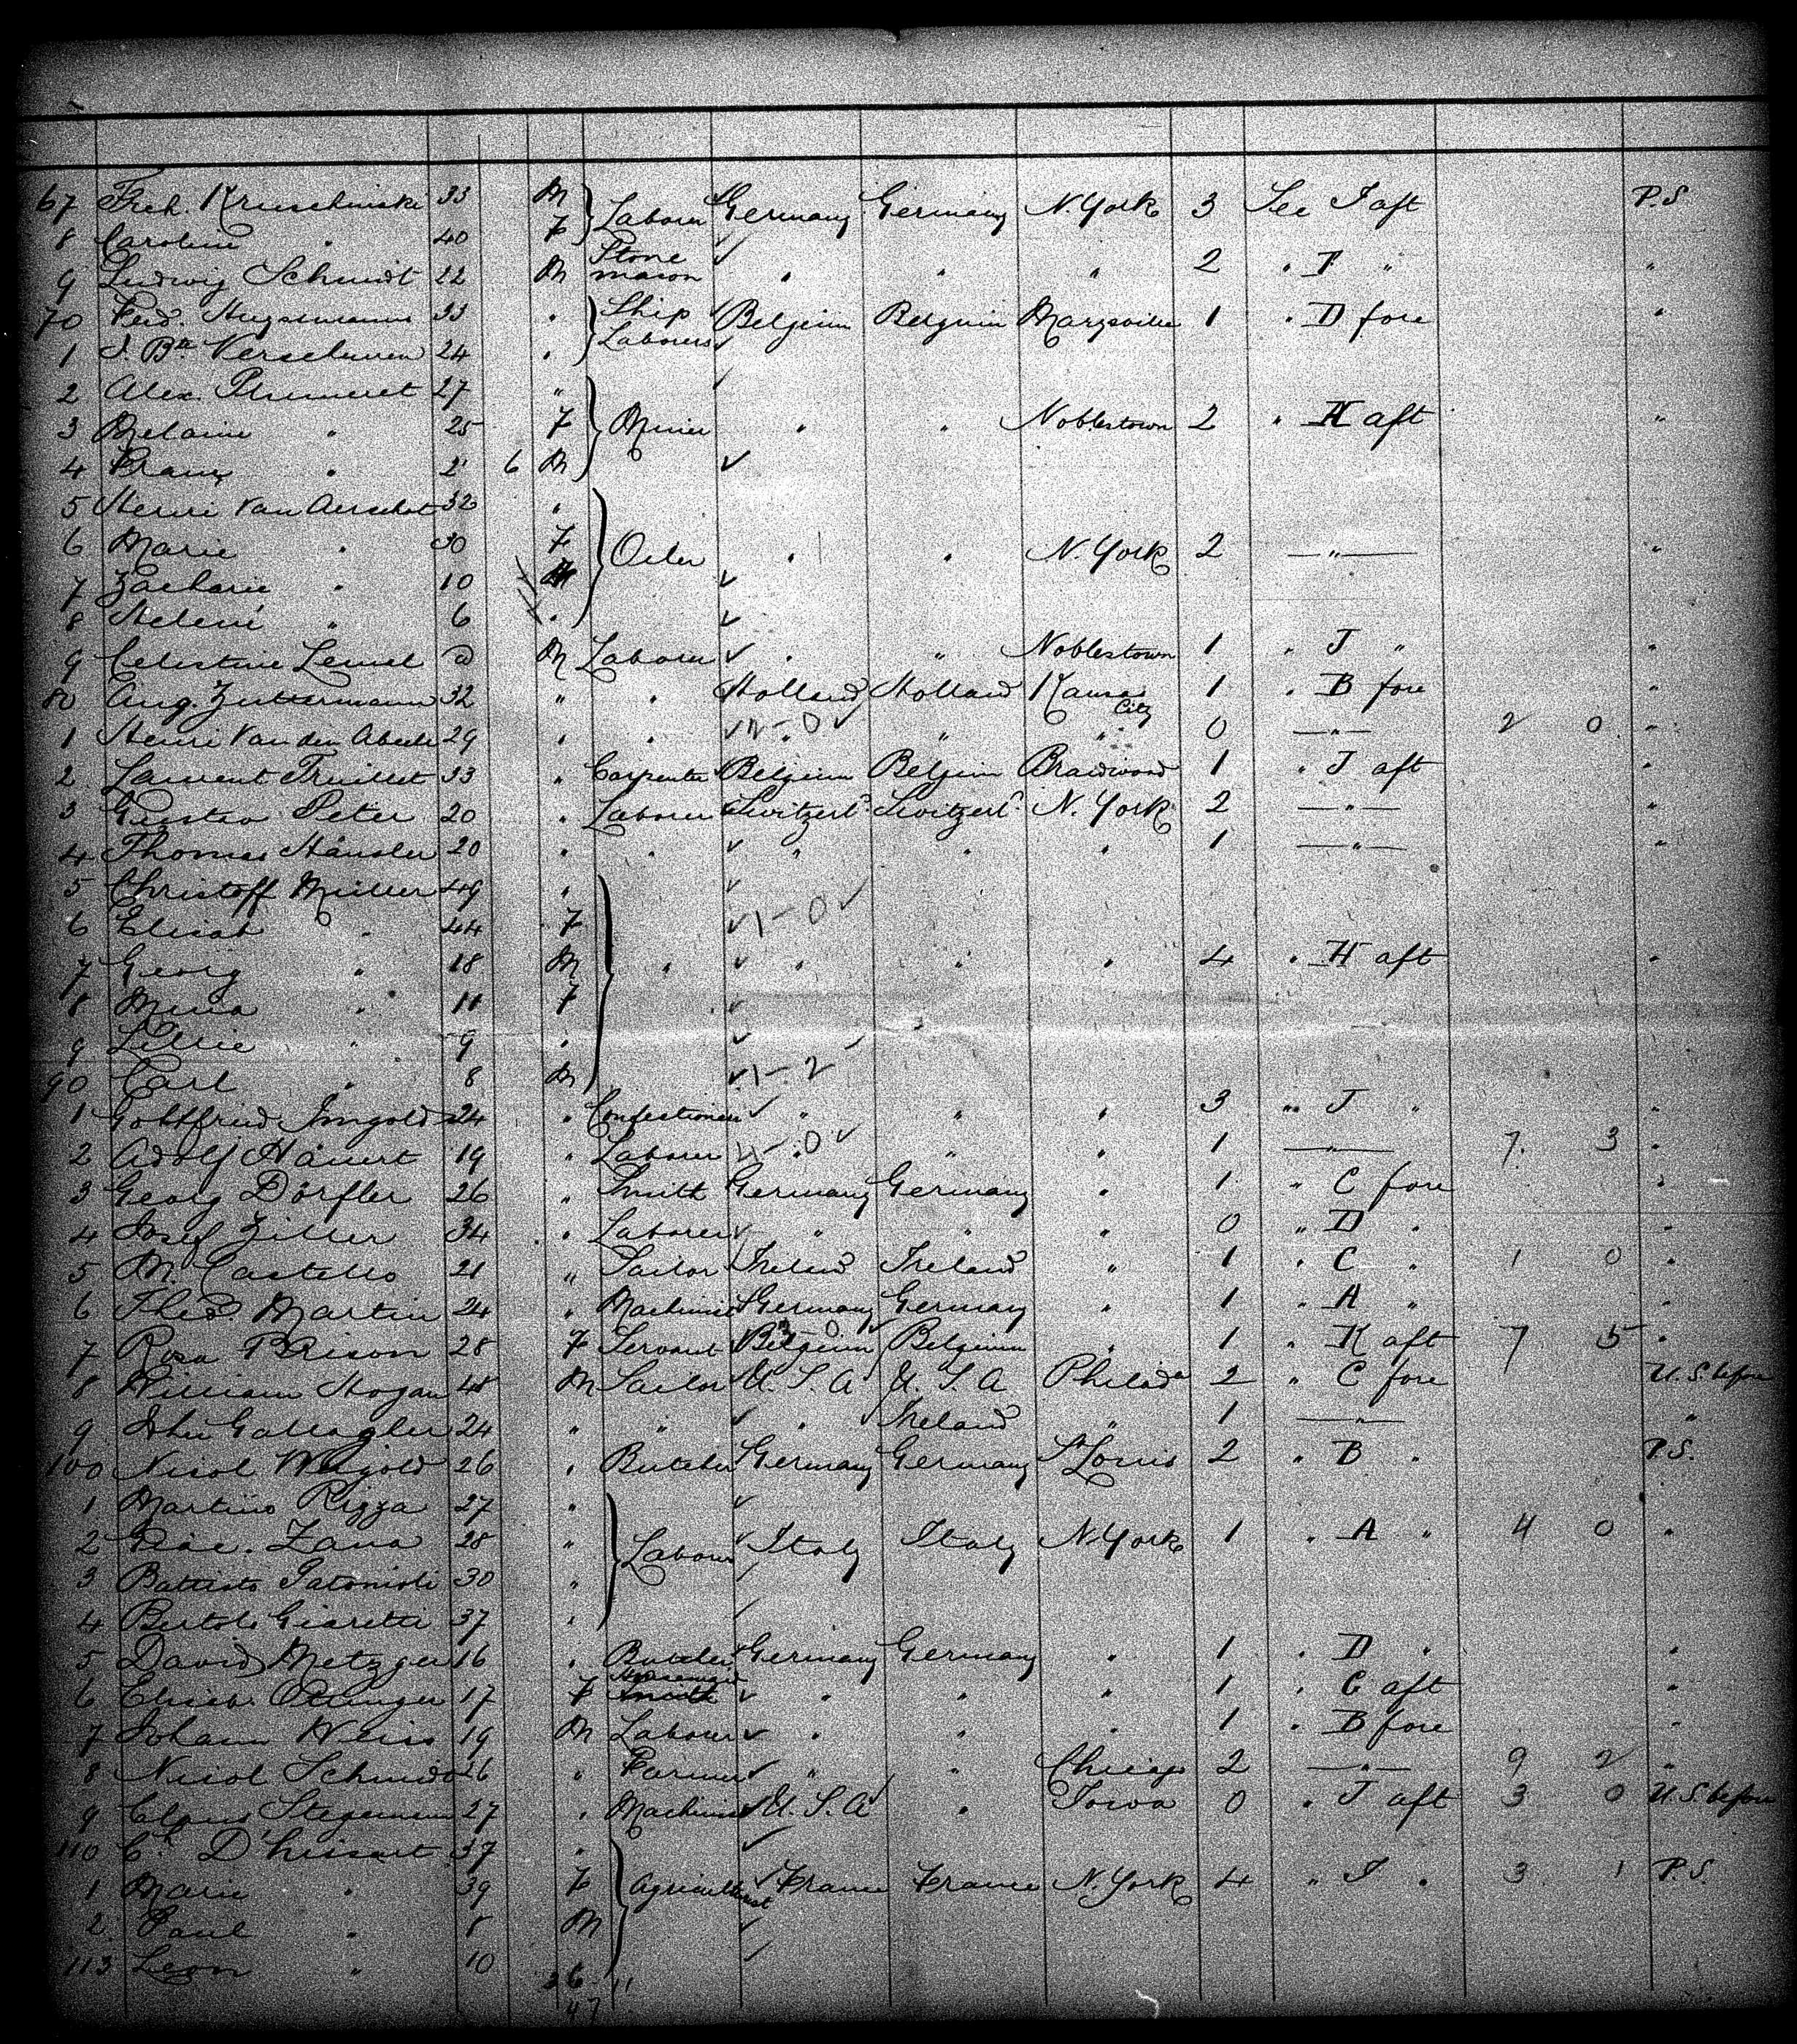 67 Fred. Kruschinski 33 M Laborer Germany Germany N. York 3 See J aft P.S
8 Caroline " 40 F
9 Ludwig Schmidt 22 M Stone mason " " " 2 " F " "
70 Ferd. 33 " Ship Laborers Belgium Belgium Marysville 1 " D fore "
1 J. Bte Verschueren 24 "
2 Alex. Plumeret 27 "
3 Melanie " 25 F Miner " " Noblestown 2 " H aft "
4 Franz " 2 6 M
5 Henri Van Aerschot 32 "
6 Marie " 30 F Oiler " " N. York 2 — " — "
7 Zacharie " 10
8 Helene " 6 "
9 Celestine M Laborer " " Noblestown 1 " J " "
80 Aug. Zuttermann 32 " " Holland Holland Kansas City 1 " B fore "
1 Henri Van den Abeele 29 " " " " " 0 — " — 2 0 "
2 Laurent Truillet 33 " Carpenter Belgium Belgium Braidwood 1 " J aft "
3 Gustav Peter 20 " Laborer Switzerld. Switzerld. N. York 2 — " — "
4 Thomas Hänsler 20 " " " " " 1 — " — "
5 Christoff Müller 49 "
6 Elisab " 44 F 1 - 0
7 Georg " 18 M " " " " 4 " H aft "
8 Mina " 11 F
9 Lillie " 9 "
90 Carl " 8 M 1 - 2
1 Gottfried Imgold 24 " Confectioner " " " 3 " J " "
2 Adolf Häuert 19 " Laborer " " " 1 — " — 7. 3 "
3 Georg Dörfler 26 " Smith Germany Germany " 1 " C fore "
4 Josef Ziller 34 " Laborer " " " 0 " D " "
5 M. Castello 21 " Sailor Ireland Ireland " 1 " C " 1 0 "
6 Theo. Martin 24 " Machinist Germany Germany " 1 " A " "
7 Rosa Brison 28 F Servant Belgium Belgium " 1 " K aft 7 5 "
8 William Hogan 48 M Sailor U. S. A U. S. A Philada 2 " C fore U.S. before
9 John Gallagher 24 " " " Ireland " 1 — " — "
100 Nicol Weigold 26 " Butcher Germany Germany St Louis 2 " B " P.S.
1 Martino Rizza 27 "
2 Zana 28 " Laborer Italy Italy N. York 1 " A " 4 0 "
3 Battista 30 "
4 Bertolo Giaretti 37 "
5 David Metzger 16 " Butcher Germany Germany " 1 " D " "
6 Elisab. Ottinger 17 F " " " 1 " C aft "
7 Johann Weiss 19 M Laborer " " " 1 " B fore "
8 Nicol Schmidt 26 " Farmer " " Chicago 2 — " — 9 2 "
9 Claus Stegemann 27 " Machinist U. S. A " Iowa 0 " J aft 3 0 U.S. before
110 Ch. D'hissart 37 "
1 Marie " 39 F Agriculturist France France N. York 4 " J " 3 1 P.S.
2 Paul " 8 M
113 Leon " 10
36 11
47